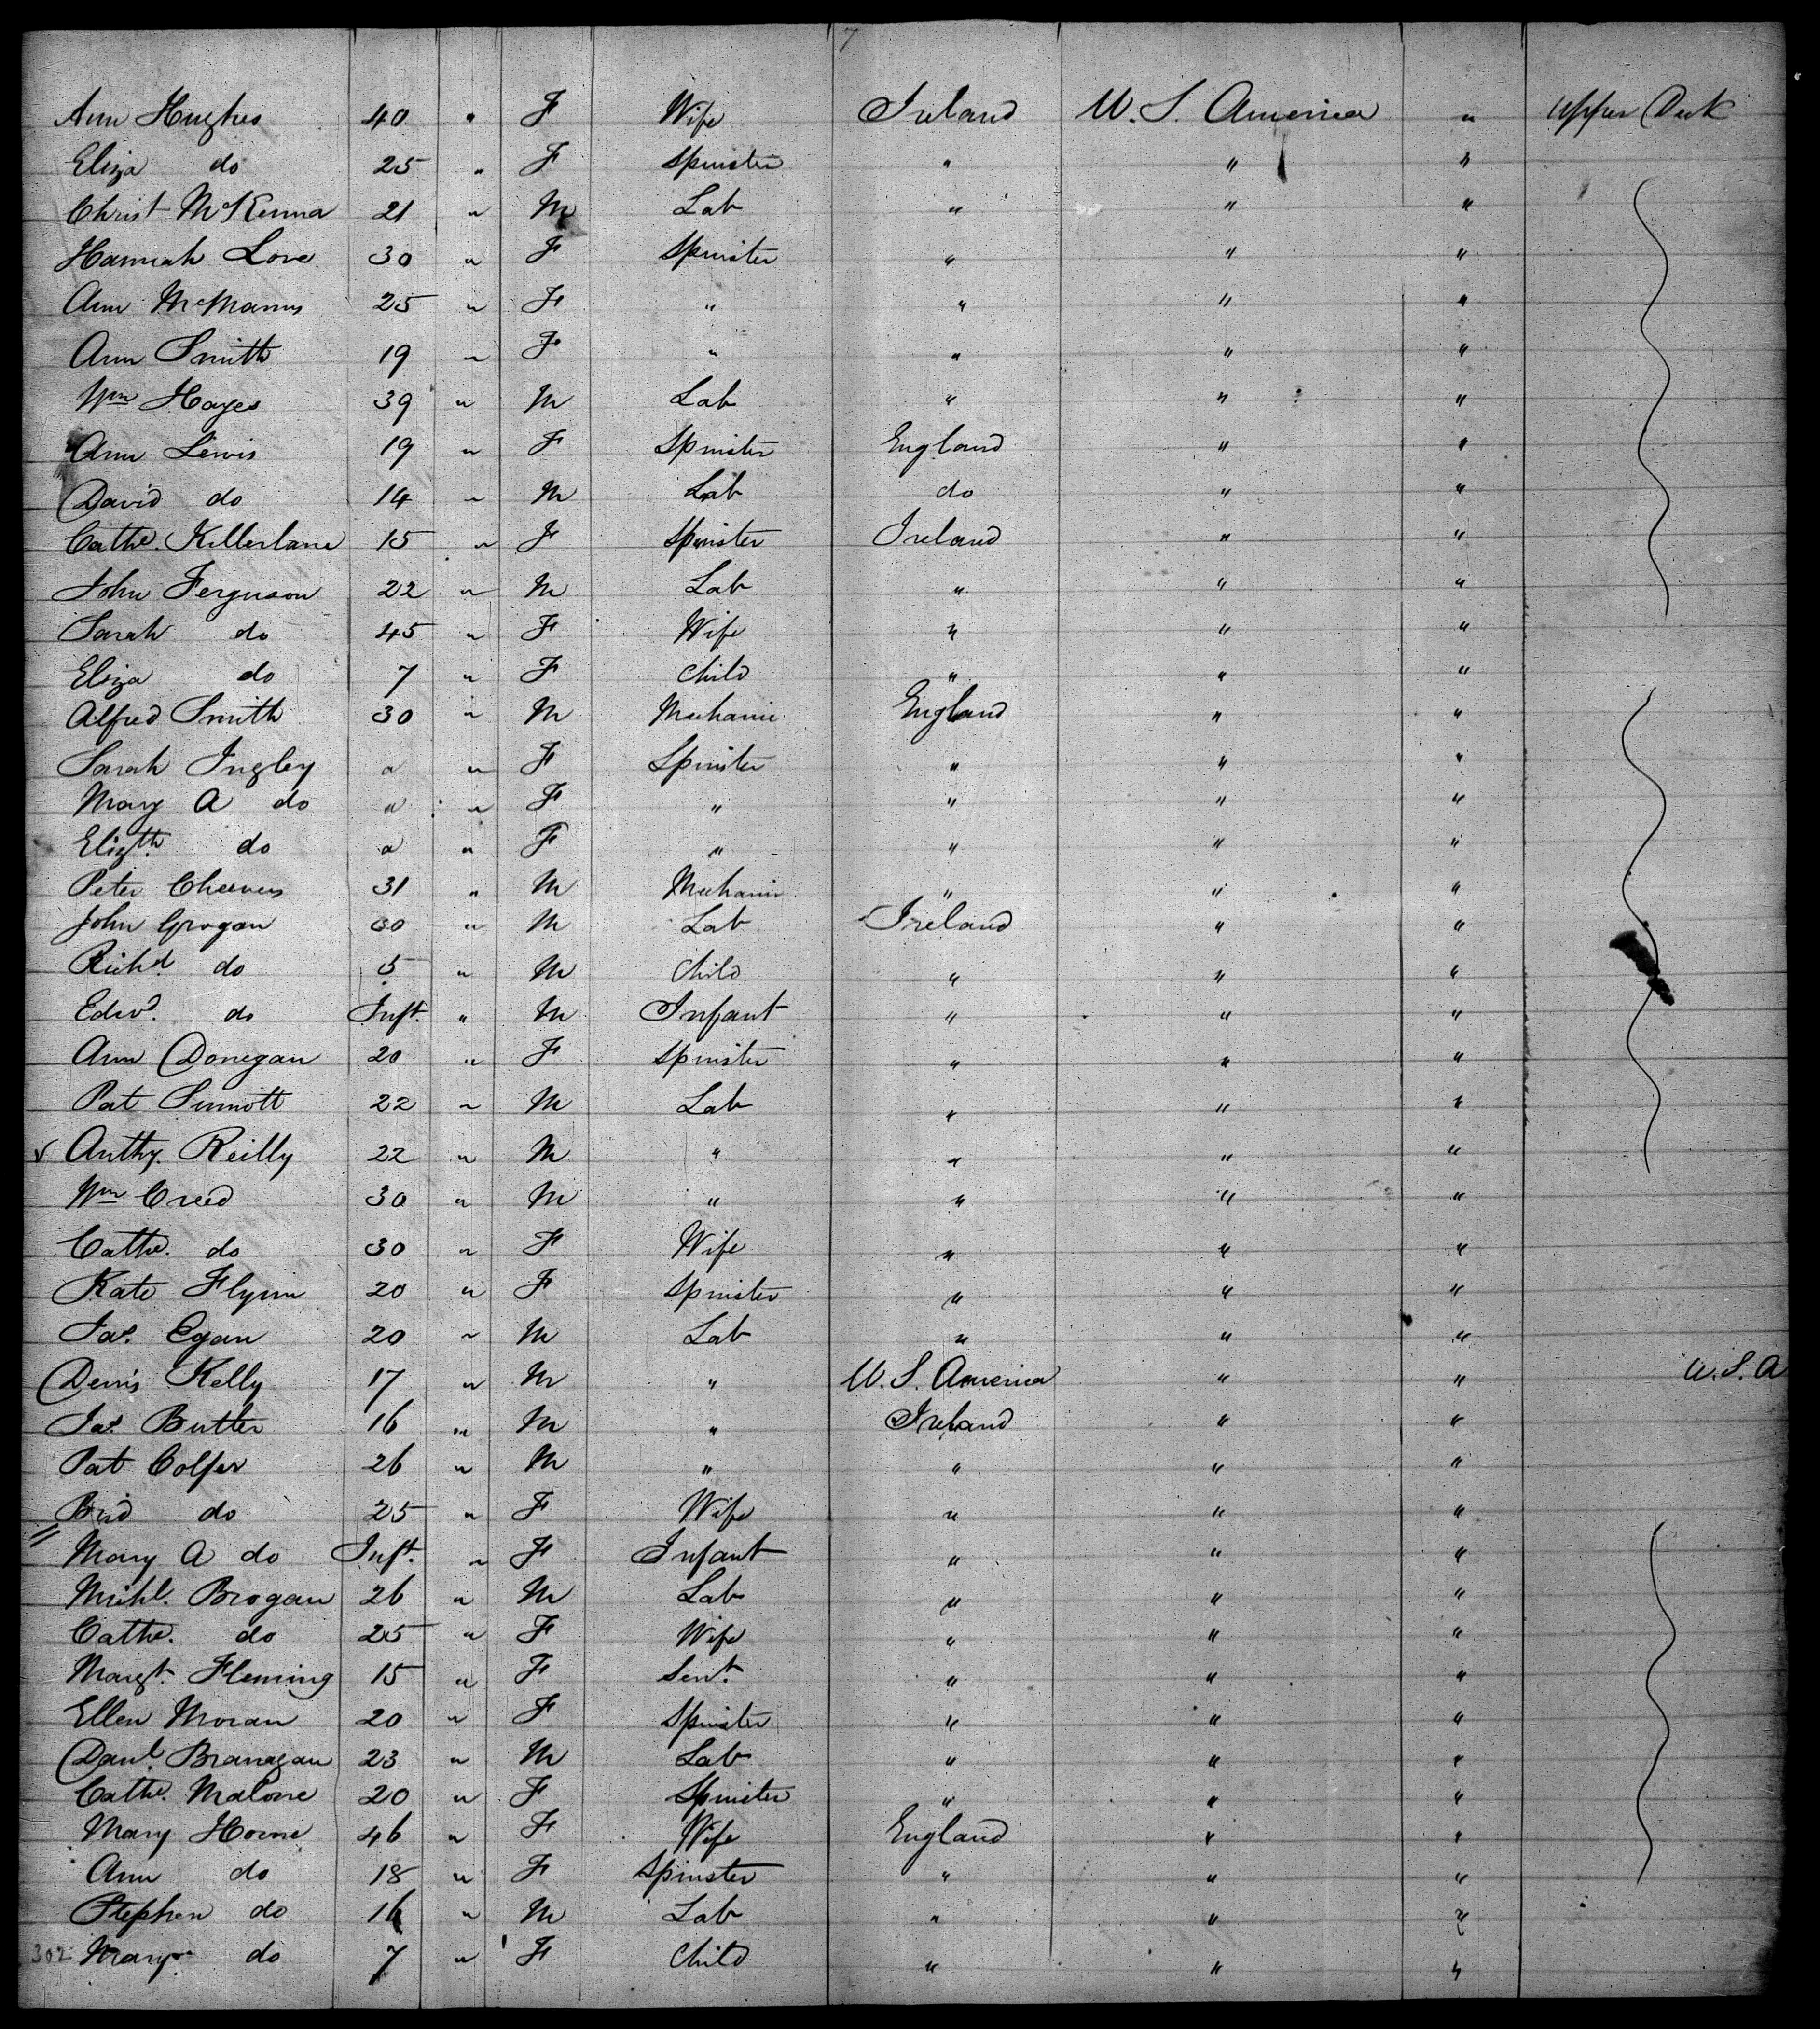 7
Ann Hughes 40 " F Wife Ireland U. S. America " Upper Deck
Eliza do 25 " F Spinster " " "
Christ McKenna 21 " M Lab " " "
Hannah Love 30 " F Spinster " " "
Ann McManus 25 " F " " " "
Ann Smith 19 " F " " " "
Wm Hayes 39 " M Lab " " "
Ann Lewis 19 " F Spinster England " "
David do 14 " M Lab do " "
Cathe. Killerlane 15 " F Spinster Ireland " "
John Ferguson 22 " M Lab " " "
Sarah do 45 " F Wife " " "
Eliza do 7 " F Child " " "
Alfred Smith 30 " M Mechanic England " "
Sarah Ingley a " F Spinster " " "
Mary A do a " F " " " "
Elizth. do a " F " " " "
Peter Cheevers 31 " M Mechanic " " "
John Grogan 30 " M Lab Ireland " "
Richd. do 5 " M Child " " "
Edwd. do Inft. " M Infant " " "
Ann Donegan 20 " F Spinster " " "
Pat Sinnott 22 " M Lab " " "
✓ Anthy. Reilly 22 " M " " " "
Wm Creed 30 " M " " " "
Cathe. do 30 " F Wife " " "
Kate Flynn 20 " F Spinster " " "
Jas. Egan 20 " M Lab " " "
Denis Kelly 17 " M " U. S. America " " U. S. A
Jas. Butler 16 " M " Ireland " "
Pat Colfer 26 " M " " " "
Brid do 25 " F Wife " " "
Mary A do Inft. " F Infant " " "
Michl. Brogan 26 " M Lab " " "
Cathe. do 25 " F Wife " " "
Margt. Fleming 15 " F Servt. " " "
Ellen Moran 20 " F Spinster " " "
Danl. Branagan 23 " M Lab " " "
Cathe. Malone 20 " F Spinster " " "
Mary Horne 46 " F Wife England " "
Ann do 18 " F Spinster " " "
Stephen do 16 " M Lab " " "
302 Mary do 7 " F Child " " "